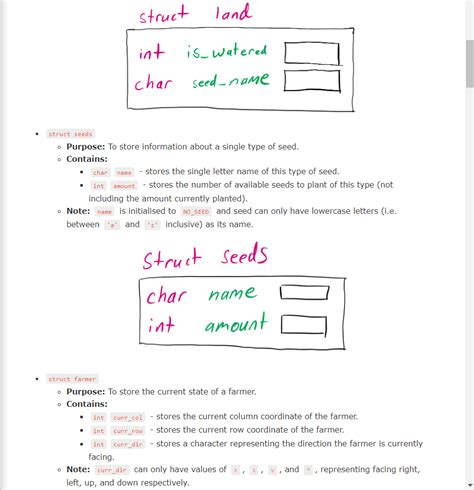 struct land
int is_watered
char seed_name
struct seeds
Purpose: To store information about a single type of seed.
Contains:
char name - stores the single letter name of this type of seed.
int amount - stores the number of available seeds to plant of this type (not
including the amount currently planted).
Note: name is initialised to NO_SEED and seed can only have lowercase letters (i.e.
between 'a' and 'z' inclusive) as its name.
struct seeds
char name
int amount
struct farmer
Purpose: To store the current state of a farmer.
Contains:
int curr_col - stores the current column coordinate of the farmer.
int curr_row - stores the current row coordinate of the farmer.
int curr_dir - stores a character representing the direction the farmer is currently
facing.
Note: curr_dir can only have values of > , < , v , and ^ , representing facing right,
left, up, and down respectively.